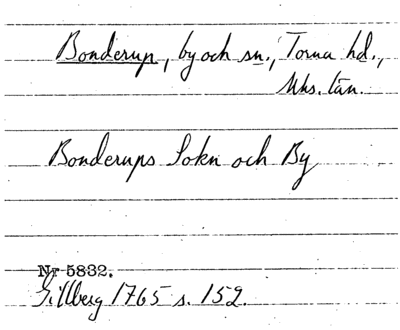 Bonderup, by och sn., Torna hd.,
Mhs. län.
Bonderups Sokn och By
Nr 5832.
Gillberg 1765 s. 152.